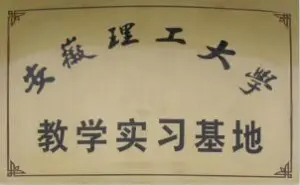 安徽理工大學
教学实习基地